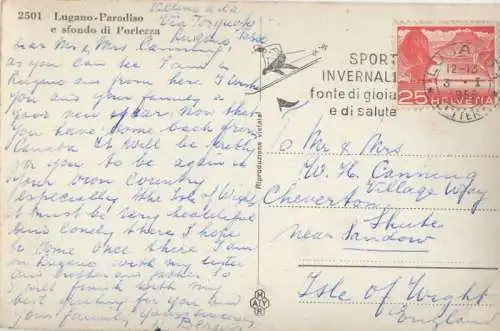 2501 Lugano-Paradiso
e sfondo di Porlezza
Via
Lugano
Dear Mr & Mrs Canning
as you can see I am in
Lugano and from here I wish
you and your family a
good new year. Now that
you have come back from
Canada it will be pretty
for you to be again in
your own country
especially the Isle of Wight
it must be very beautiful
and lovely there I hope
to come once there I am
in Lugano with my sister
and brother and father So
I will finish with my
best wishes for you and
your family, yours sincerely
SPORT
INVERNALI
fonte di gioia
e di salute
LUGANO
12-13
3. I
25 HELVETIA
Riproduzione vietata
To Mr & Mrs
W. H. Canning
Village Way
Cheverton
Shute
near Sandow
Isle of Wight
England